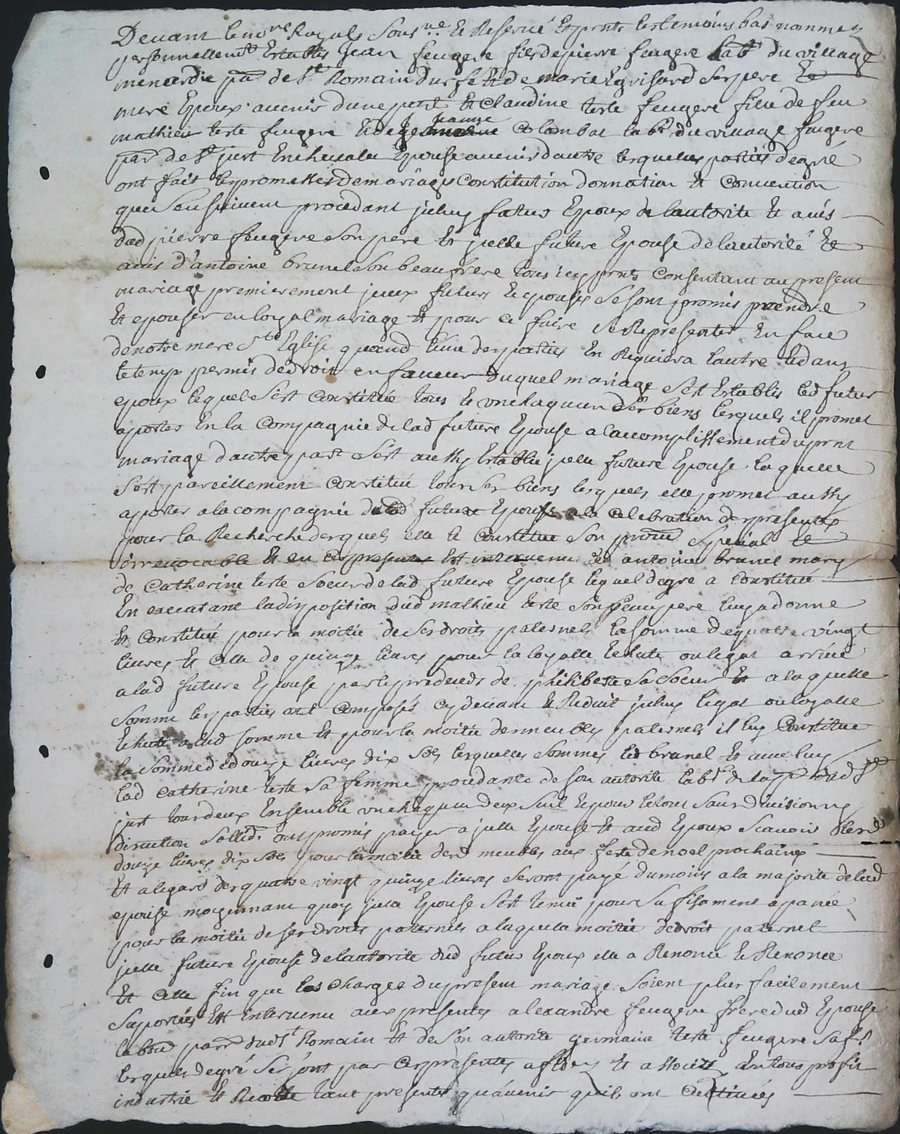 Devant le no.re Royal Sous.ne & Reservé & presents les temoins bas nommes
personnellem.t Establis jean feugere fils de pierre feugere lab.r du village
menardie par. de s.t Romain durfe & de marie grisard ses pere &
mere Epoux avenir dune part & claudine teste feugere fille de feu
mathieu teste feugere & de jeanne colombat lab.r du village feugere
par. de s.t just En chevalu Epouse avenir dautre lesquelles parties de gré
ont fait les promesses de mariages Constitution donnation & Convention
quei Sensuivent procedant jceluy futur Epoux de lautorité & avis
dud pierre feugere Son pere & jcelle future Epouse de lautorité &
avis d'antoine brunel Son beaufrere tous jcy pnts Consentant au present
mariage premierement jceux futurs & epouses Se sont promis prendre
& epouser en loyal mariage & pour ce faire Se Representer En face
de notre mere s.te Eglise quand lune des parties En Requiera lautre & dans
le temp permis de droit en faveur duquel mariage sest Establis led futur
epoux lequel sest Constitué tous & un chaquun Ses biens lesquels il promet
aporter En la Compagnie de lad future Epouse a laccomplissement du pnt
mariage dautre part sest aussy Establie jcelle future Epouse laquelle
sest pareillement Constitué tous Ses biens lesquels elle promet aussy
aporter a la compagnie dud futur Epoux a la Celebration des presentes
pour la Recherche desquels elle le Constitue Son procur. special &
jrrevocable & en ces presentes est intervenu led antoine brunel mary
de Catherine teste Soeur de lad future Epouse lequel de gre a Constitué
En executant la disposition dud mathieu teste Son beau pere luy a donne
& Constitué pour la moitié de Ses droits paternels la somme de quatre vingt
livres & celle de quinze livres pour la loyalle & chute ou legat arrivé
a lad future Epouse par le predeceds de philiberte Sa Soeur & a laquelle
Somme les parties ont Composés cy devant & Reduit jceluy legat ou loyalle
& chute & lad somme & pour la moitié de meubles paternels il luy Constitue
la Somme de douze livres dix Sols lesquelles Sommes led brunel & avec luy
lad Catherine teste Sa femme procedante de Son autorité lab.r de la par. dud s.t
just tous deux Ensemble un chaqun deux Seul & pour le tout Sans division ny
discution Sollid. ont promis payer a jcelle Epouse & aud Epoux Scavoir
douze livres dix Sols pour la moitié desd meubles aux feste de noel prochaines
& a legard des quatre vingt quinze livres Seront payé du moins a la majorité de lad
epouse moyennant quoy jcelle Epouse Sest tenue pour apanée
pour la moitié de Ses droits paternels a laquelle moitié de droit paternel
jcelle future Epouse de lautorité dud futur Epoux elle a Renoncé & Renonce
& affin que les Charges du present mariage Soient plus facilement
Suportées Est intervenu aux presentes alexandre feugere frere dud Epoux
lab.r par. dud s.t Romain & de Son autorité germaine teste feugere Sa f.e
lesquels de gré Se sont par ces presentes affrery & associes En tous profit
industrie & Recolte tant presents quavenir quils ont